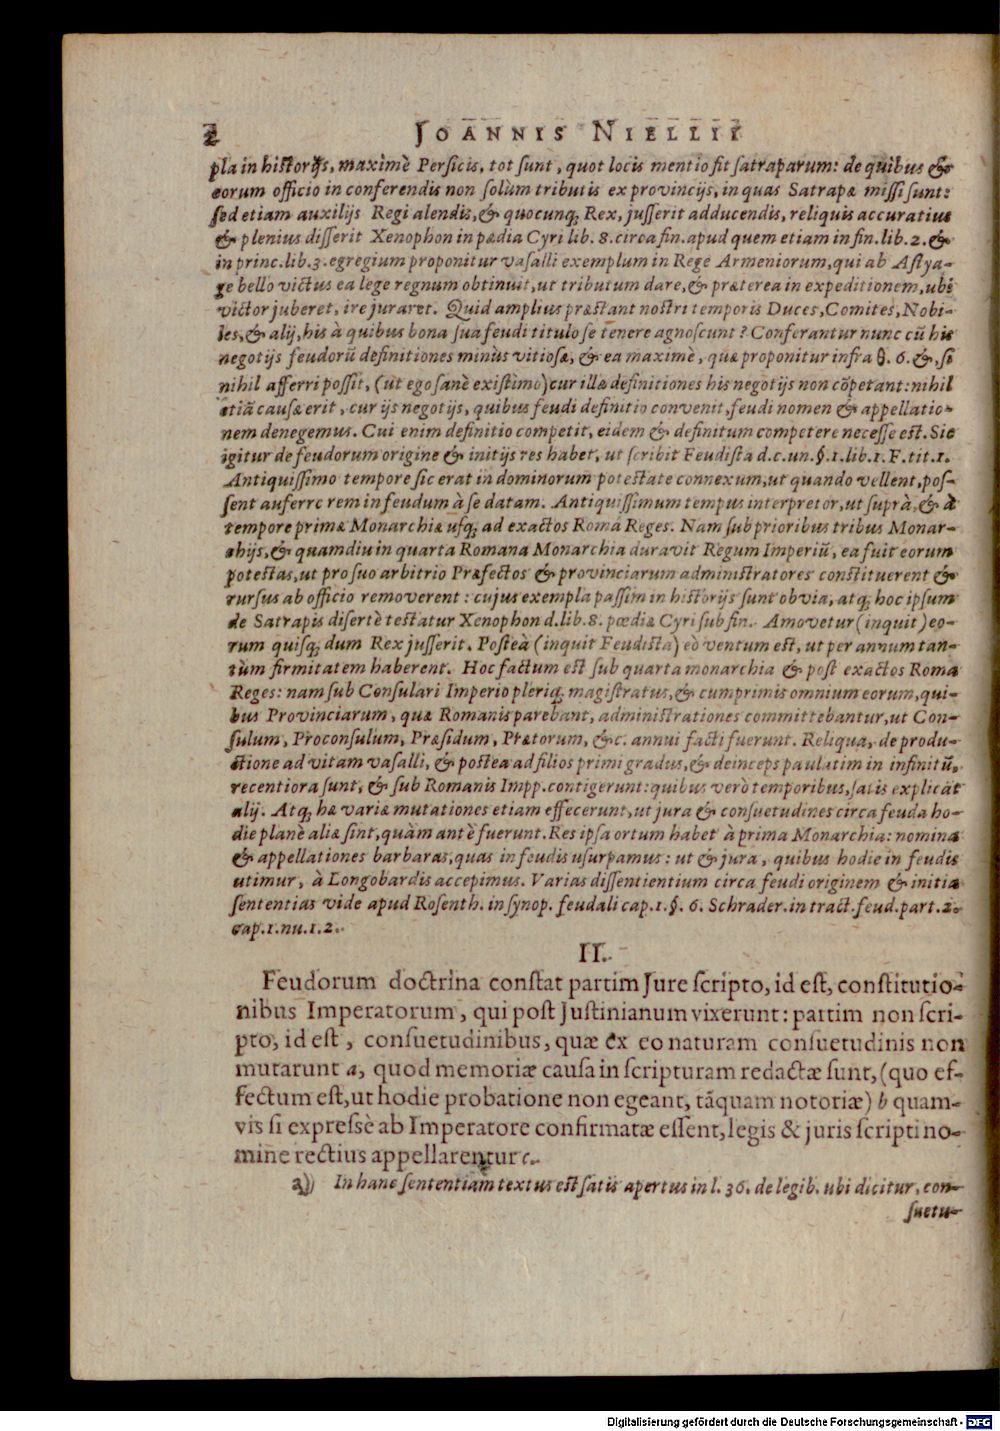 2 JOANNIS NIELLII
pla in historijs, maximè Persicis, tot sunt, quot locis mentio fit satraparum: de quibus &
eorum officio in conferendis non solùm tributis ex provincijs, in quas Satrapæ missi sunt:
sed etiam auxilijs Regi alendis, & quocunq; Rex, jusserit adducendis, reliquis accuratius
& plenius disserit Xenophon in pædia Cyri lib. 8. circa fin. apud quem etiam in fin. lib. 2. &
in princ. lib. 3. egregium proponitur vasalli exemplum in Rege Armeniorum, qui ab Astya-
ge bello victus ea lege regnum obtinuit, ut tributum dare, & præterea in expeditionem, ubi
victor juberet, ire juraret. Quid amplius præstant nostri temporis Duces, Comites, Nobi-
les, & alij, his à quibus bona sua feudi titulo se tenere agnoscunt? Conferantur nunc cũ his
negotijs feudorũ definitiones minùs vitiosæ, & ea maximè, quæ proponitur infra §. 6. &, si
nihil afferri possit, (ut ego sanè existimo) cur illæ definitiones his negotijs non cõpetant: nihil
etiã causæ erit, cur ijs negotijs, quibus feudi definitio convenit, feudi nomen & appellatio-
nem denegemus. Cui enim definitio competit, eidem & definitum competere necesse est. Sic
igitur de feudorum origine & initijs res habet, ut scribit Feudista d. c. un. §. 1. lib. 1. F. tit. 1.
Antiquissimo tempore sic erat in dominorum potestate connexum, ut quando vellent, pos-
sent auferre rem in feudum à se datam. Antiquissimum tempus interpretor, ut suprà, & à
tempore primæ Monarchiæ usq; ad exactos Romá Reges. Nam sub prioribus tribus Monar-
chijs, & quamdiu in quarta Romana Monarchia duravit Regum Imperiũ, ea fuit eorum
potestas, ut pro suo arbitrio Præfectos & provinciarum administratores constituerent &
rursus ab officio removerent: cujus exempla passim in historijs sunt obvia, atq; hoc ipsum
de Satrapis disertè testatur Xenophon d. lib. 8. pœdiæ Cyri sub fin. Amovetur (inquit) eo-
rum quisq; dum Rex jusserit. Posteà (inquit Feudista) eò ventum est, ut per annum tan-
tùm firmitatem haberent. Hoc factum est sub quarta monarchia & post exactos Roma
Reges: nam sub Consulari Imperio pleriq; magistratus, & cumprimis omnium eorum, qui-
bus Provinciarum, quæ Romanis parebant, administrationes committebantur, ut Con-
sulum, Proconsulum, Præsidum, Prætorum, &c. annui facti fuerunt. Reliqua, de produ-
ctione ad vitam vasalli, & postea ad filios primi gradus, & deinceps paulatim in infinitũ,
recentiora sunt, & sub Romanis Impp. contigerunt: quibus verò temporibus, satis explicãt
alij. Atq; hæ variæ mutationes etiam effecerunt, ut jura & consuetudines circa feuda ho-
die planè aliæ sint, quàm antè fuerunt. Res ipsa ortum habet à prima Monarchia: nomina
& appellationes barbaras, quas in feudis usurpamus: ut & jura, quibus hodie in feudis
utimur, à Longobardis accepimus. Varias dissentientium circa feudi originem & initia
sententias vide apud Rosenth. in synop. feudali cap. 1. §. 6. Schrader. in tract. feud. part. 2.
cap. 1. nu. 1. 2.
II.
Feudorum doctrina constat partim Jure scripto, id est, constitutio-
nibus Imperatorum, qui post Justinianum vixerunt: partim non scri-
pto, id est, consuetudinibus, quæ ex eo naturam consuetudinis non
mutarunt a, quod memoriæ causa in scripturam redactæ sunt, (quo ef-
fectum est, ut hodie probatione non egeant, tãquam notoriæ) b quam-
vis si expressè ab Imperatore confirmatæ essent, legis & juris scripti no-
mine rectius appellarentur c.
a) In hanc sententiam textus est satis apertus in l. 36. de legib. ubi dicitur, con-
suetu-
Digitalisierung gefördert durch die Deutsche Forschungsgemeinschaft - DFG